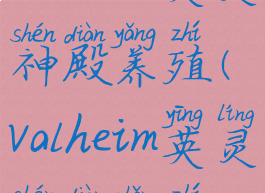 shén diàn yǎng zhí
神殿养殖(
yīng líng
Valheim英灵